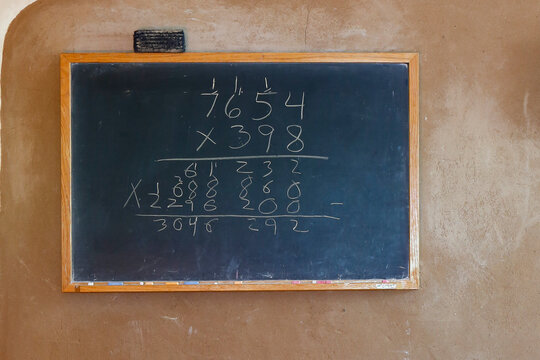 1 1 1
7654
×398
61 232
1 688 860
X 2296 200 –
3046 292